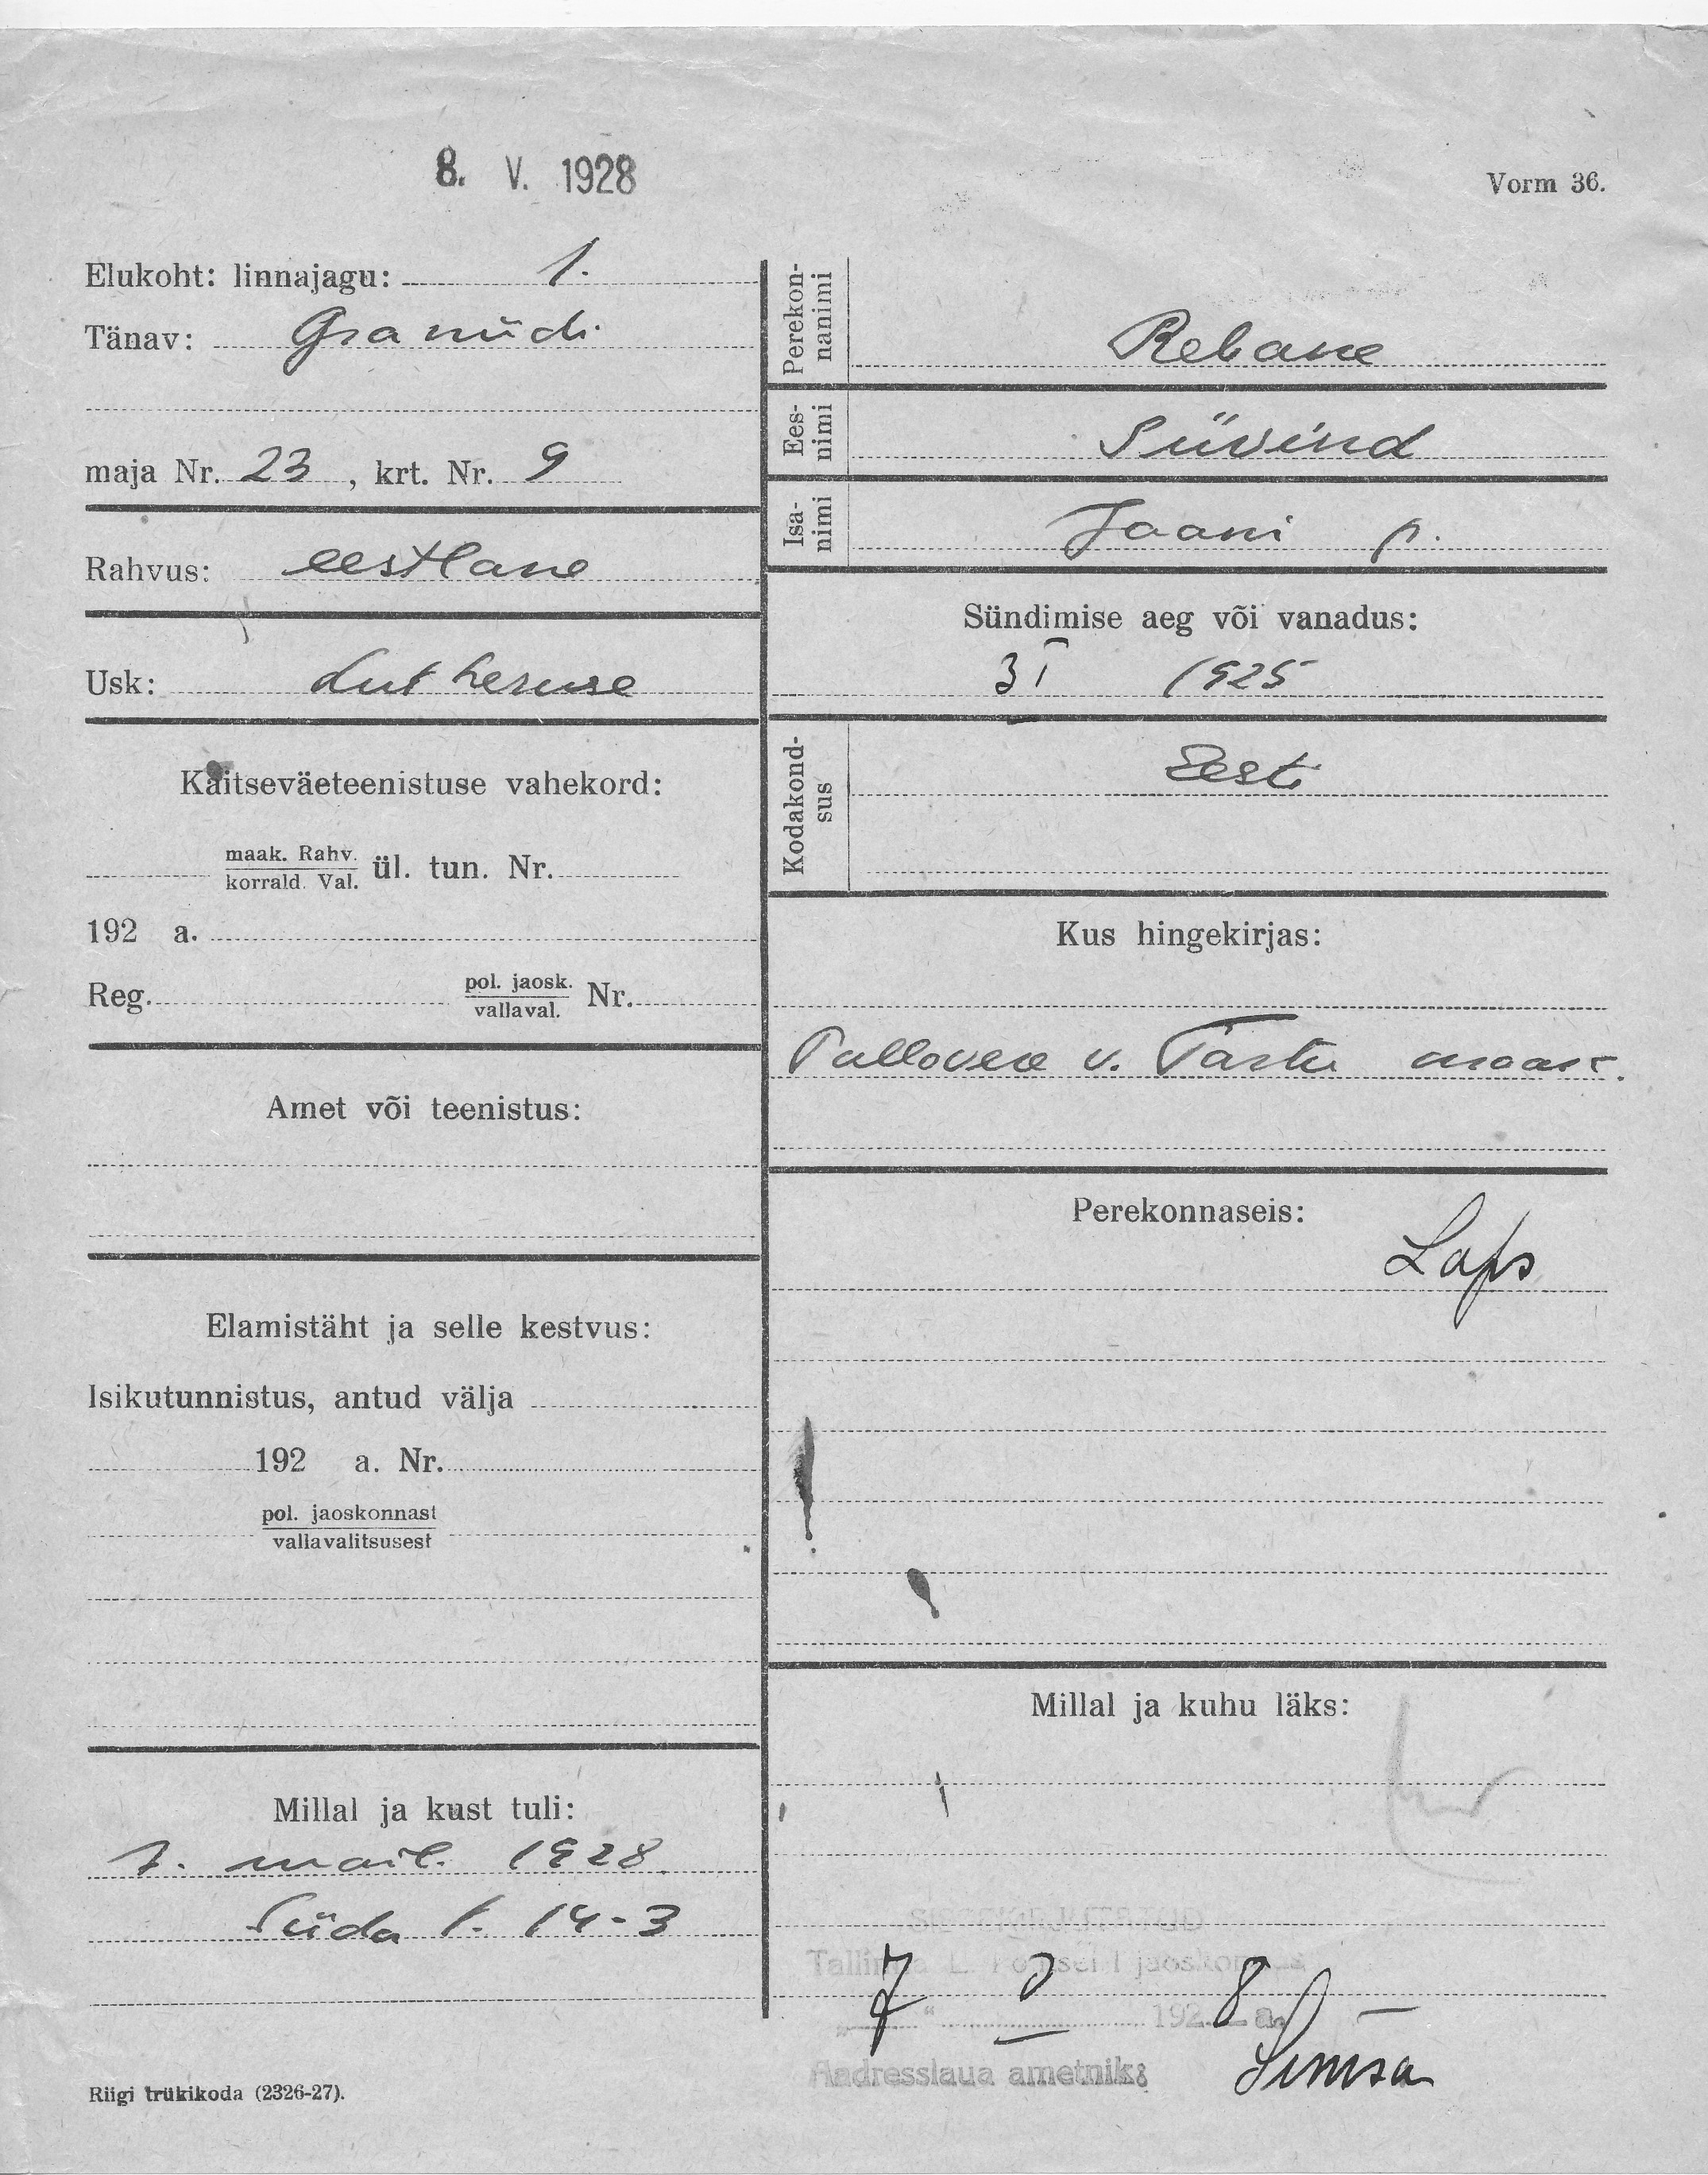 8. V. 1928
Vorm 36.
Elukoht: linnajagu: 1.
Tänav: Graniidi
maja Nr. 23, krt. Nr. 9
Rahvus: eestlane
Usk: Lutheruse
Kaitseväeteenistuse vahekord:
maak. Rahv.
korrald. Val. ül. tun. Nr.
192 a.
Reg. pol. jaosk. Nr.
vallaval.
Amet või teenistus:
Elamistäht ja selle kestvus:
Isikutunnistus, antud välja
192 a. Nr.
pol. jaoskonnast
vallavalitsusest
Millal ja kust tuli:
7. mail. 1928.
Süda t. 14-3
Riigi trükikoda (2326-27).
Perekon-
nanimi
Rebane
Ees-
nimi
Süvind
Isa-
nimi
Jaani p.
Sündimise aeg või vanadus:
1925
Kodakond-
sus
Eesti
Kus hingekirjas:
v. Tartu maak.
Perekonnaseis:
Laps
Millal ja kuhu läks:
SISSEKIRJUTATUD
Tallinna L. Politsei I jaoskonnas
7 8
„ “ 192 a.
Aadresslaua ametnik: